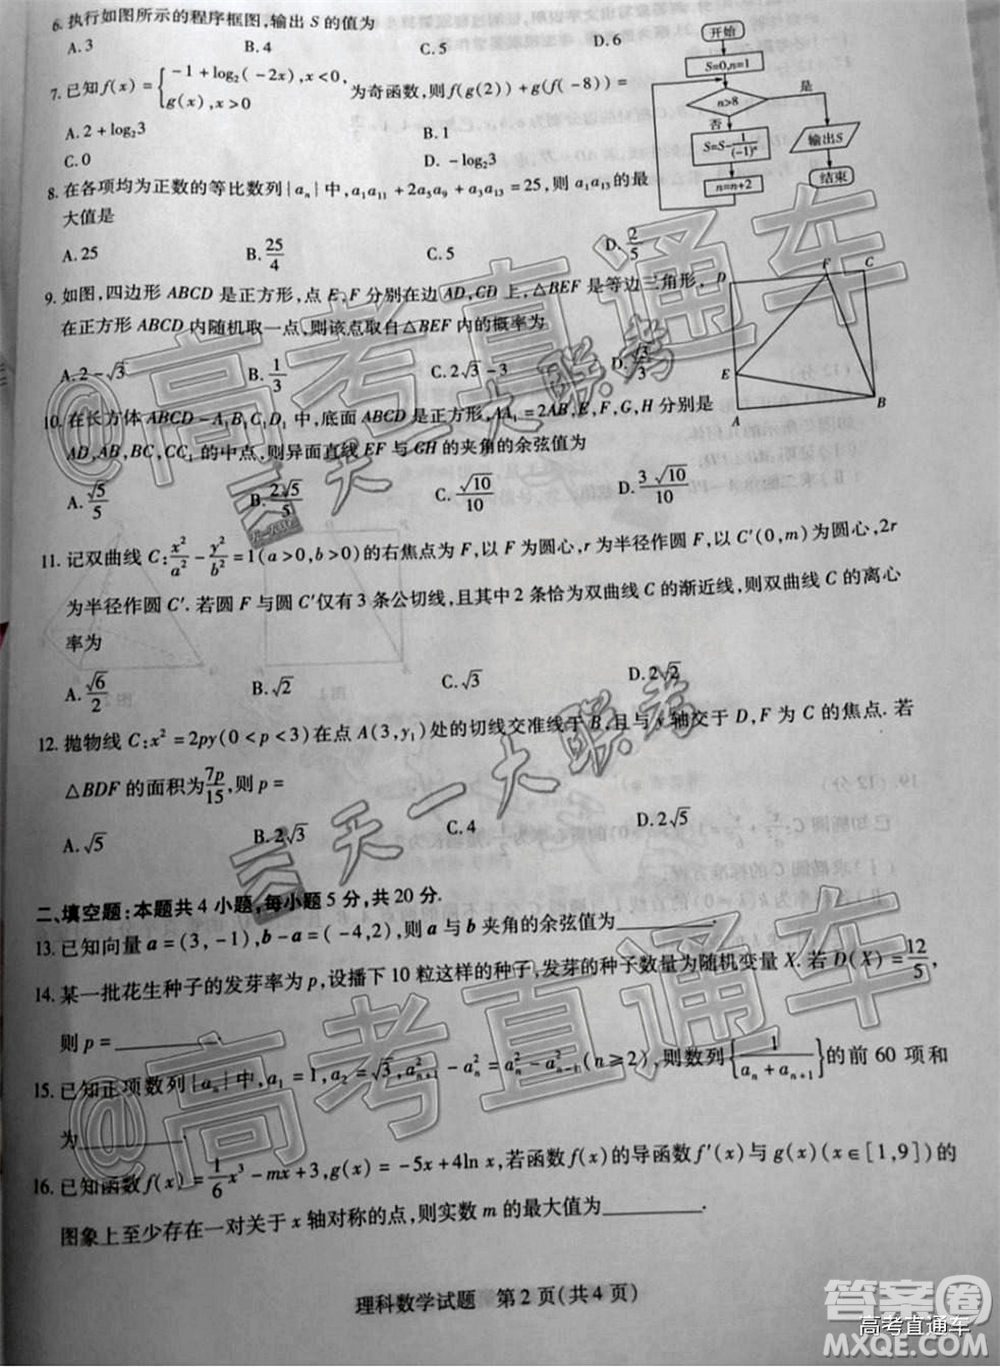 6. 执行如图所示的程序框图,输出 S 的值为
A. 3 B. 4 C. 5 D. 6
7. 已知 f(x) = { -1 + log₂(-2x), x<0, g(x), x>0 为奇函数,则 f(g(2)) + g(f(-8)) =
A. 2 + log₂3 B. 1
C. 0 D. -log₂3
8. 在各项均为正数的等比数列{aₙ}中, a₁a₁₁ + 2a₅a₉ + a₃a₁₃ = 25, 则 a₁a₁₃ 的最
大值是
A. 25 B. 25/4 C. 5 D. 2/5
开始
S=0, n=1
n>8
是
否
S=S-1/(-1)ⁿ
输出S
n=n+2
结束
9. 如图,四边形 ABCD 是正方形,点 E、F 分别在边 AD, CD 上, △BEF 是等边三角形,
在正方形 ABCD 内随机取一点,则该点取自△BEF 内的概率为
A. 2-√3 B. 1/3 C. 2√3-3 D. √3/3
D F C
E
A B
10. 在长方体 ABCD-A₁B₁C₁D₁ 中,底面 ABCD 是正方形, AA₁=2AB, E, F, G, H 分别是
AD, AB, BC, CC₁ 的中点,则异面直线 EF 与 GH 的夹角的余弦值为
A. √5/5 B. 2√5/5 C. √10/10 D. 3√10/10
11. 记双曲线 C: x²/a² - y²/b² = 1(a>0, b>0) 的右焦点为 F, 以 F 为圆心, r 为半径作圆 F, 以 C′(0, m) 为圆心, 2r
为半径作圆 C′. 若圆 F 与圆 C′ 仅有 3 条公切线,且其中 2 条恰为双曲线 C 的渐近线,则双曲线 C 的离心
率为
A. √6/2 B. √2 C. √3 D. 2√2
12. 抛物线 C: x²=2py(0<p<3) 在点 A(3, y₁) 处的切线交准线于 B, 且与 x 轴交于 D, F 为 C 的焦点. 若
△BDF 的面积为 7p/15, 则 p =
A. √5 B. 2√3 C. 4 D. 2√5
二、填空题:本题共 4 小题,每小题 5 分,共 20 分.
13. 已知向量 a=(3, -1), b-a=(-4, 2), 则 a 与 b 夹角的余弦值为________.
14. 某一批花生种子的发芽率为 p, 设播下 10 粒这样的种子,发芽的种子数量为随机变量 X. 若 D(X) = 12/5,
则 p = ________.
15. 已知正项数列{aₙ}中, a₁=1, a₂=√3, a²ₙ₊₁ - a²ₙ = a²ₙ - a²ₙ₋₁(n≥2), 则数列{1/(aₙ+aₙ₊₁)}的前 60 项和
为________.
16. 已知函数 f(x) = 1/6 x³ - mx + 3, g(x) = -5x + 4ln x, 若函数 f(x) 的导函数 f′(x) 与 g(x)(x∈[1, 9]) 的
图象上至少存在一对关于 x 轴对称的点,则实数 m 的最大值为________.
理科数学试题 第 2 页(共 4 页)
@高考直通车
天一大联考
天一大联考
@高考直通车
答案圈
MXQE.COM
高考直通车